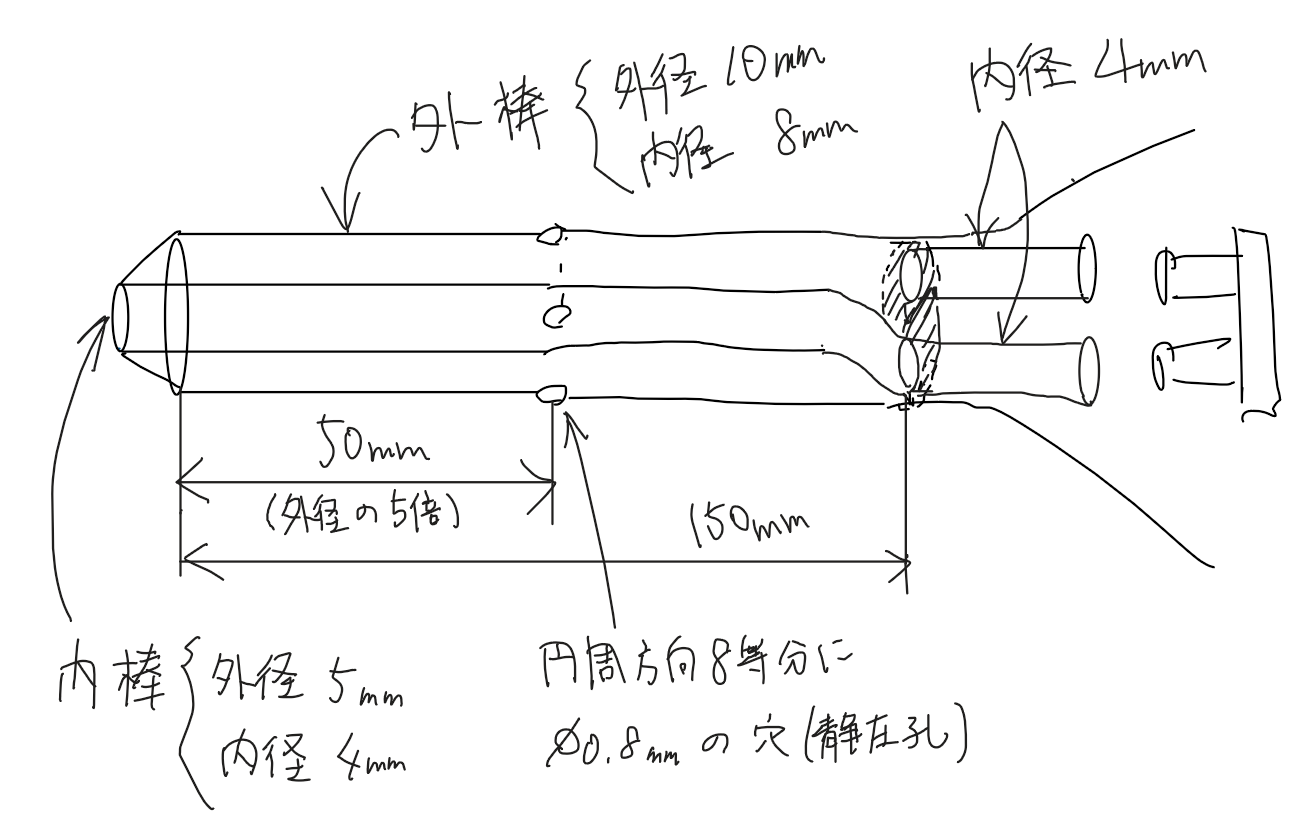 外棒
外径 10mm
内径 8mm
内径 4mm
50mm
(外径の5倍)
150mm
内棒
外径 5mm
内径 4mm
円周方向8等分に
φ0.8mm の穴(静圧孔)